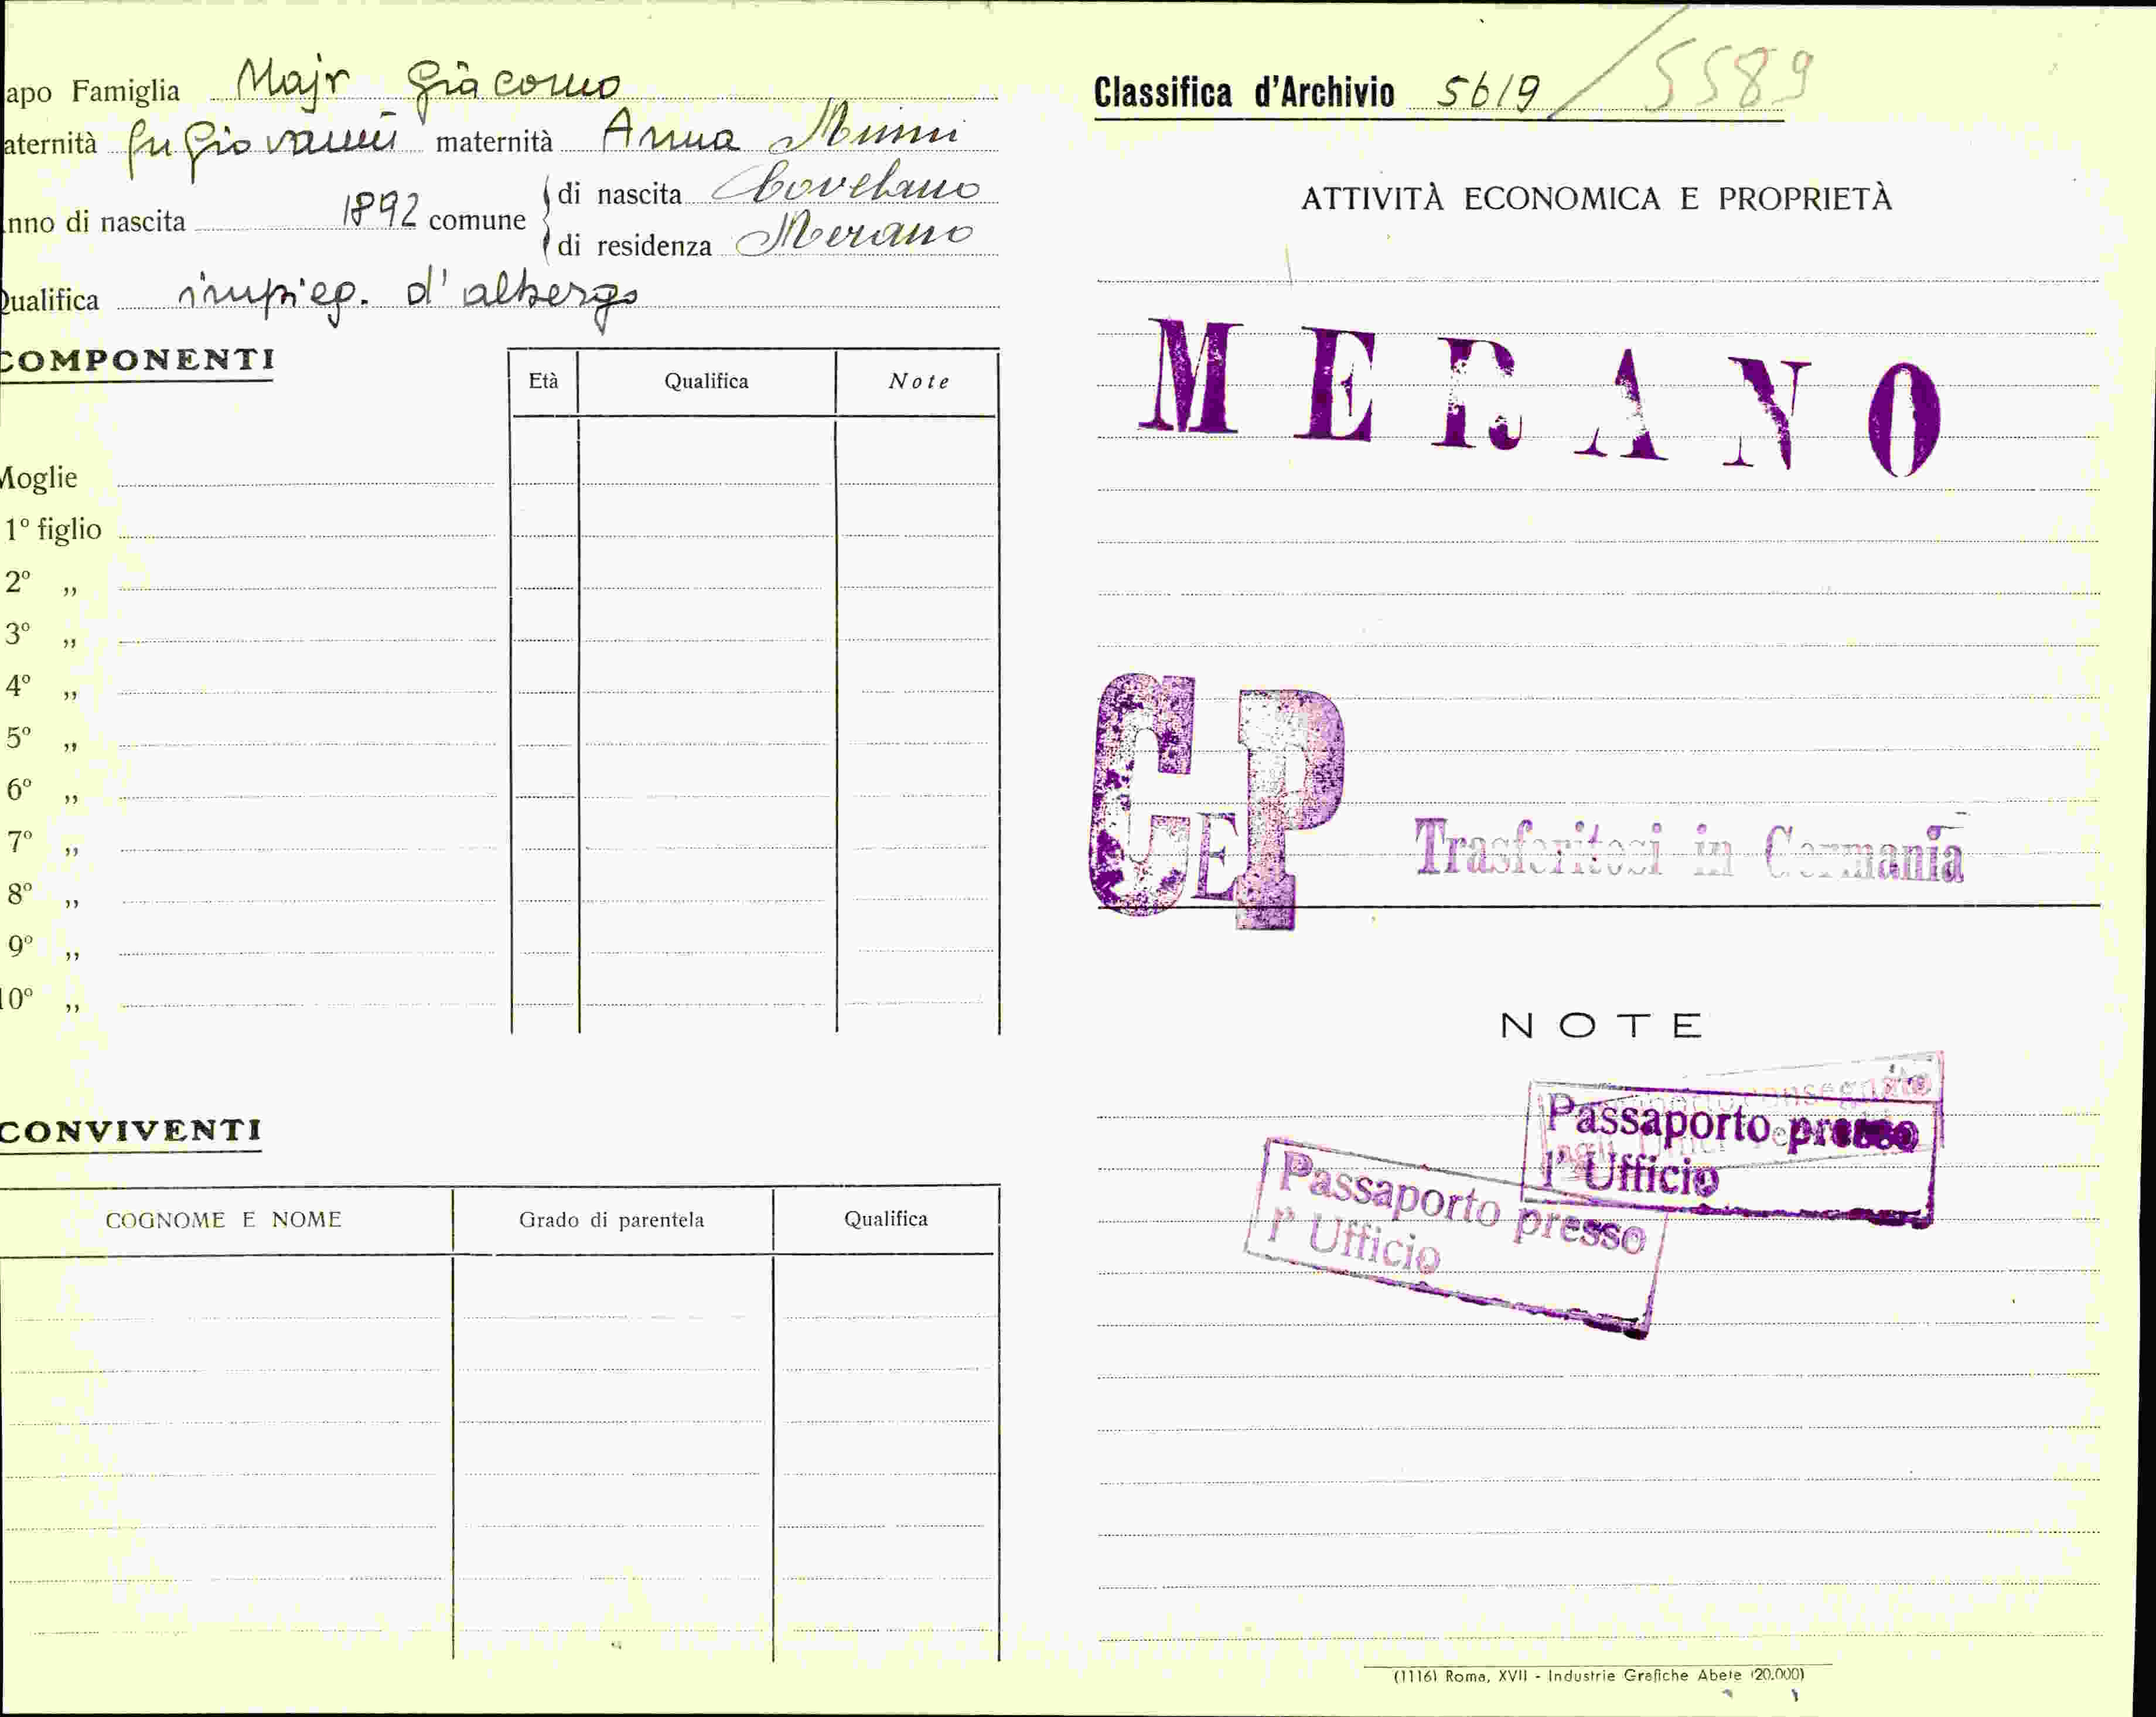 apo Famiglia Majr Giacomo
aternità fu Giovanni maternità Anna
nno di nascita 1892 comune
di nascita Covelano
di residenza Merano
Qualifica impieg. d'albergo
COMPONENTI
Età Qualifica Note
Moglie
1º figlio
2º „
3º „
4º „
5º „
6º „
7º „
8º „
9º „
10º „
CONVIVENTI
COGNOME E NOME Grado di parentela Qualifica
Classifica d'Archivio 5619 / 5589
ATTIVITÀ ECONOMICA E PROPRIETÀ
MERANO
CEP
Trasferitosi in Germania
NOTE
Passaporto presso
l' Ufficio
Passaporto presso
l' Ufficio
(1116) Roma, XVII - Industrie Grafiche Abete (20.000)